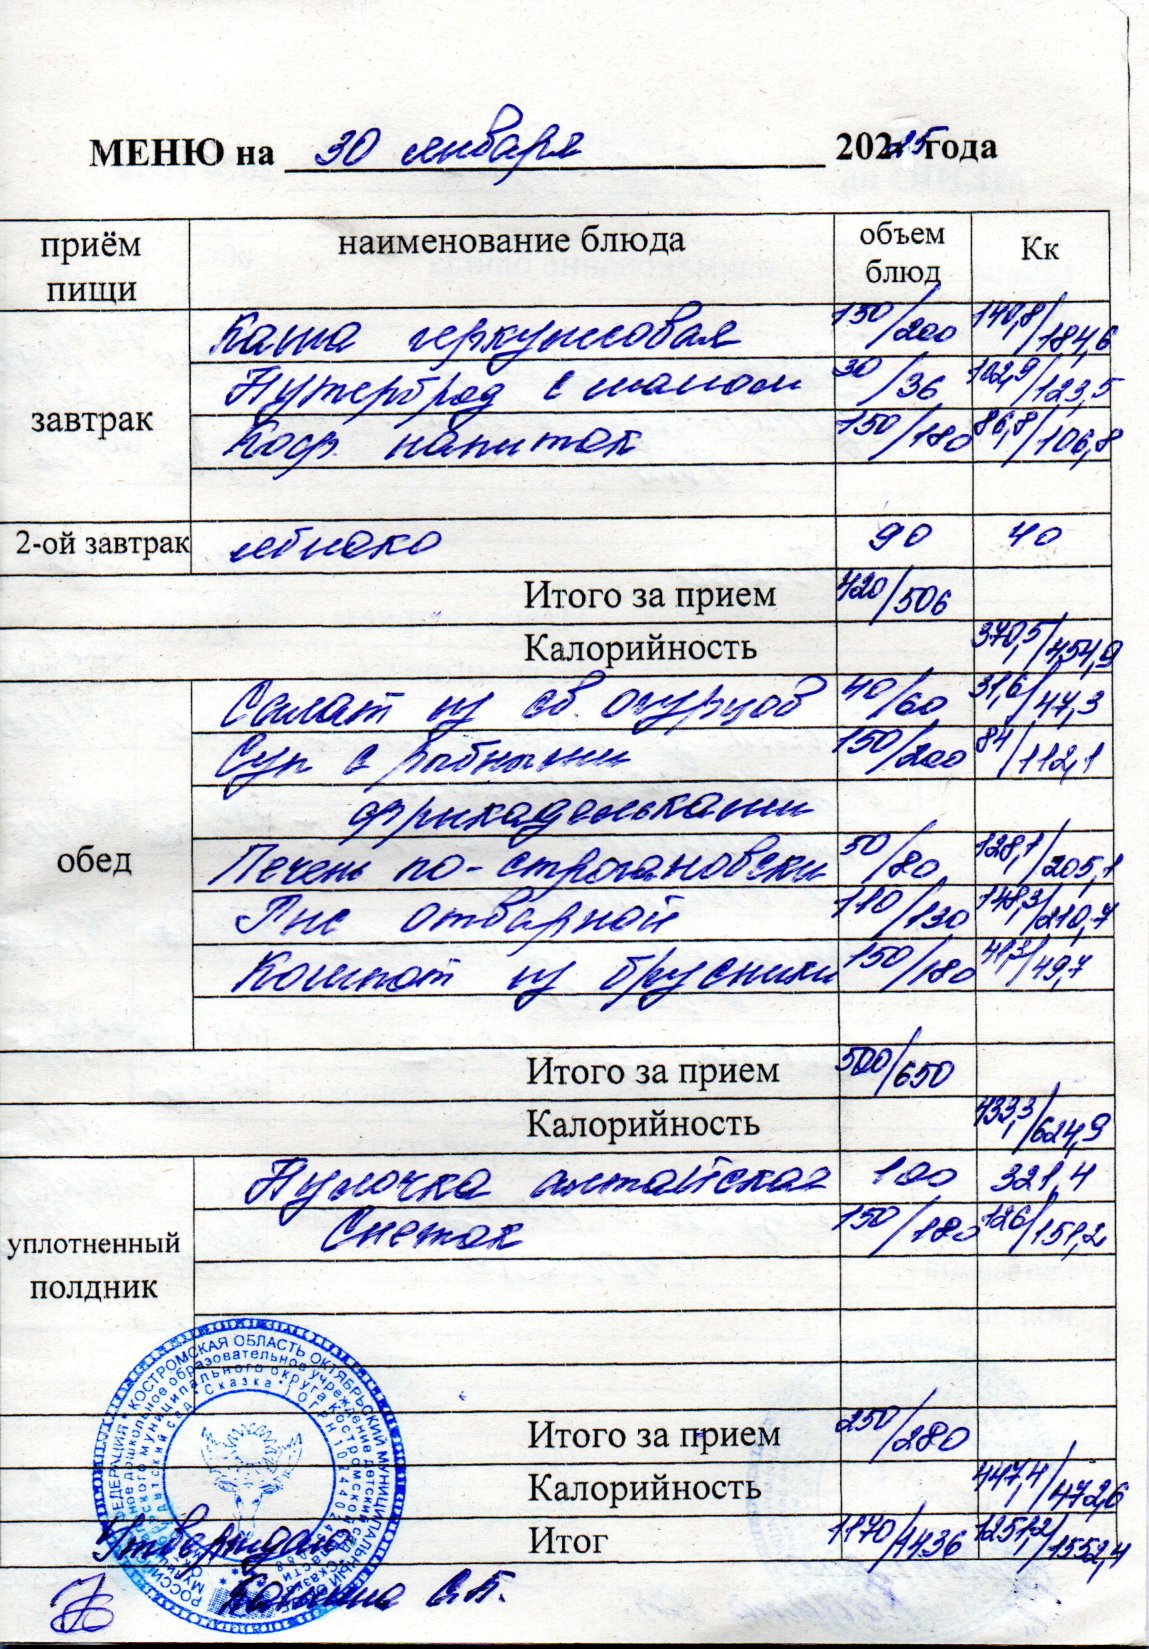 МЕНЮ на 30 января 2025 года
приём пищи наименование блюда объем блюд Кк
завтрак
Каша геркулесовая 150/200 140,8/184,6
Бутерброд с маслом 30/36 102,9/123,5
Коф. напиток 150/180 86,8/106,8
2-ой завтрак яблоко 90 40
Итого за прием 420/506
Калорийность 370,5/454,9
обед
Салат из св. огурцов 40/60 31,6/47,3
Суп с рыбными 150/200 84/112,1
фрикадельками
Печень по-строгановски 50/80 128,1/205,1
Рис отварной 110/130 148,3/210,7
Компот из брусники 150/180 41,3/49,7
Итого за прием 500/650
Калорийность 433,3/624,9
уплотненный полдник
Булочка алтайская 100 321,4
Снежок 150/180 126/151,2
Итого за прием 250/280
Калорийность 447,4/472,6
Итог 1170/1436 1251,2/1552,4
КОСТРОМСКАЯ ОБЛАСТЬ ОКТЯБРЬСКИЙ
дошкольное образовательное учреждение детский сад
муниципального округа Костромской
детский сад "Сказка"
Утверждаю
С.П.